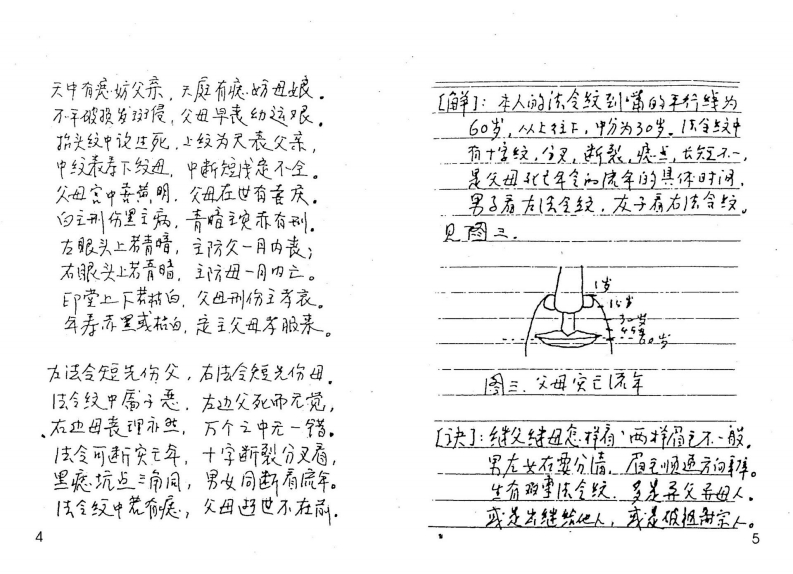 天中有痣妨父亲，天庭有痣妨母娘。
不平破损发斑侵，父母早丧幼这艰。
抬头纹中说生死，上纹为天表父亲，
中纹表寿下纹母，中断短浅定不全。
父母宫中要黄明，父母在世有喜庆。
白主刑伤黑主病，青暗主灾赤有刑。
左眼头上若青暗，主防父一月内丧；
右眼头上若青暗，主防母一月内亡。
印堂上下若枯白，父母刑伤主孝哀。
年寿赤黑或枯白，定主父母孝服来。
左法令短先伤父，右法令短先伤母。
法令纹中属子恶，左边父死而无觉，
右边母丧理亦然，万个之中无一错。
法令可断灾亡年，十字断裂分叉看，
黑痣坑点三角同，男女同断看流年。
法令纹中若有痣，父母逝世不在前。
4
[解]：本人的法令纹到嘴的平行线为
60岁，从上往下，中分为30岁。法令纹中
有十字纹，分叉，断裂，痣点，长短不一，
是父母死亡年令的流年的具体时间，
男子看左法令纹，女子看右法令纹。
见图三.
1岁
15岁
30岁
45岁
60岁
图三.父母灾亡流年
[诀]：继父继母怎样看，两样眉毛不一般。
男左女右要分清，眉毛顺逆方向
生有双重法令纹，多是异父异母人。
或是出继给他人，或是被抱养宗人。
5